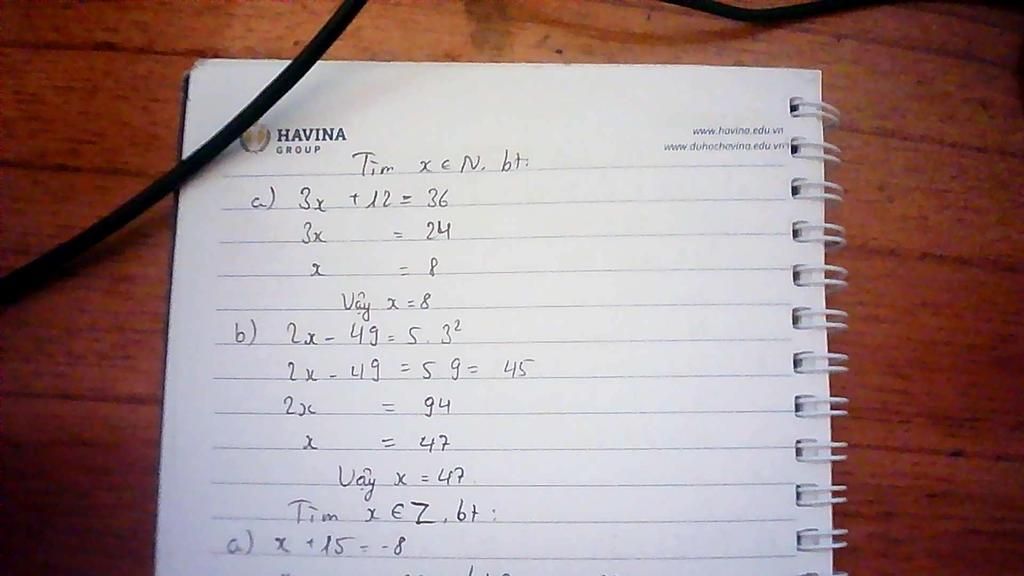 HAVINA
GROUP
www.havina.edu.vn
www.duhochavina.edu.vn
Tìm x ∈ N, bt:
a) 3x + 12 = 36
3x = 24
x = 8
Vậy x = 8
b) 2x - 49 = 5 . 3²
2x - 49 = 5 9 = 45
2x = 94
x = 47
Vậy x = 47
Tìm x ∈ Z, bt:
a) x + 15 = -8